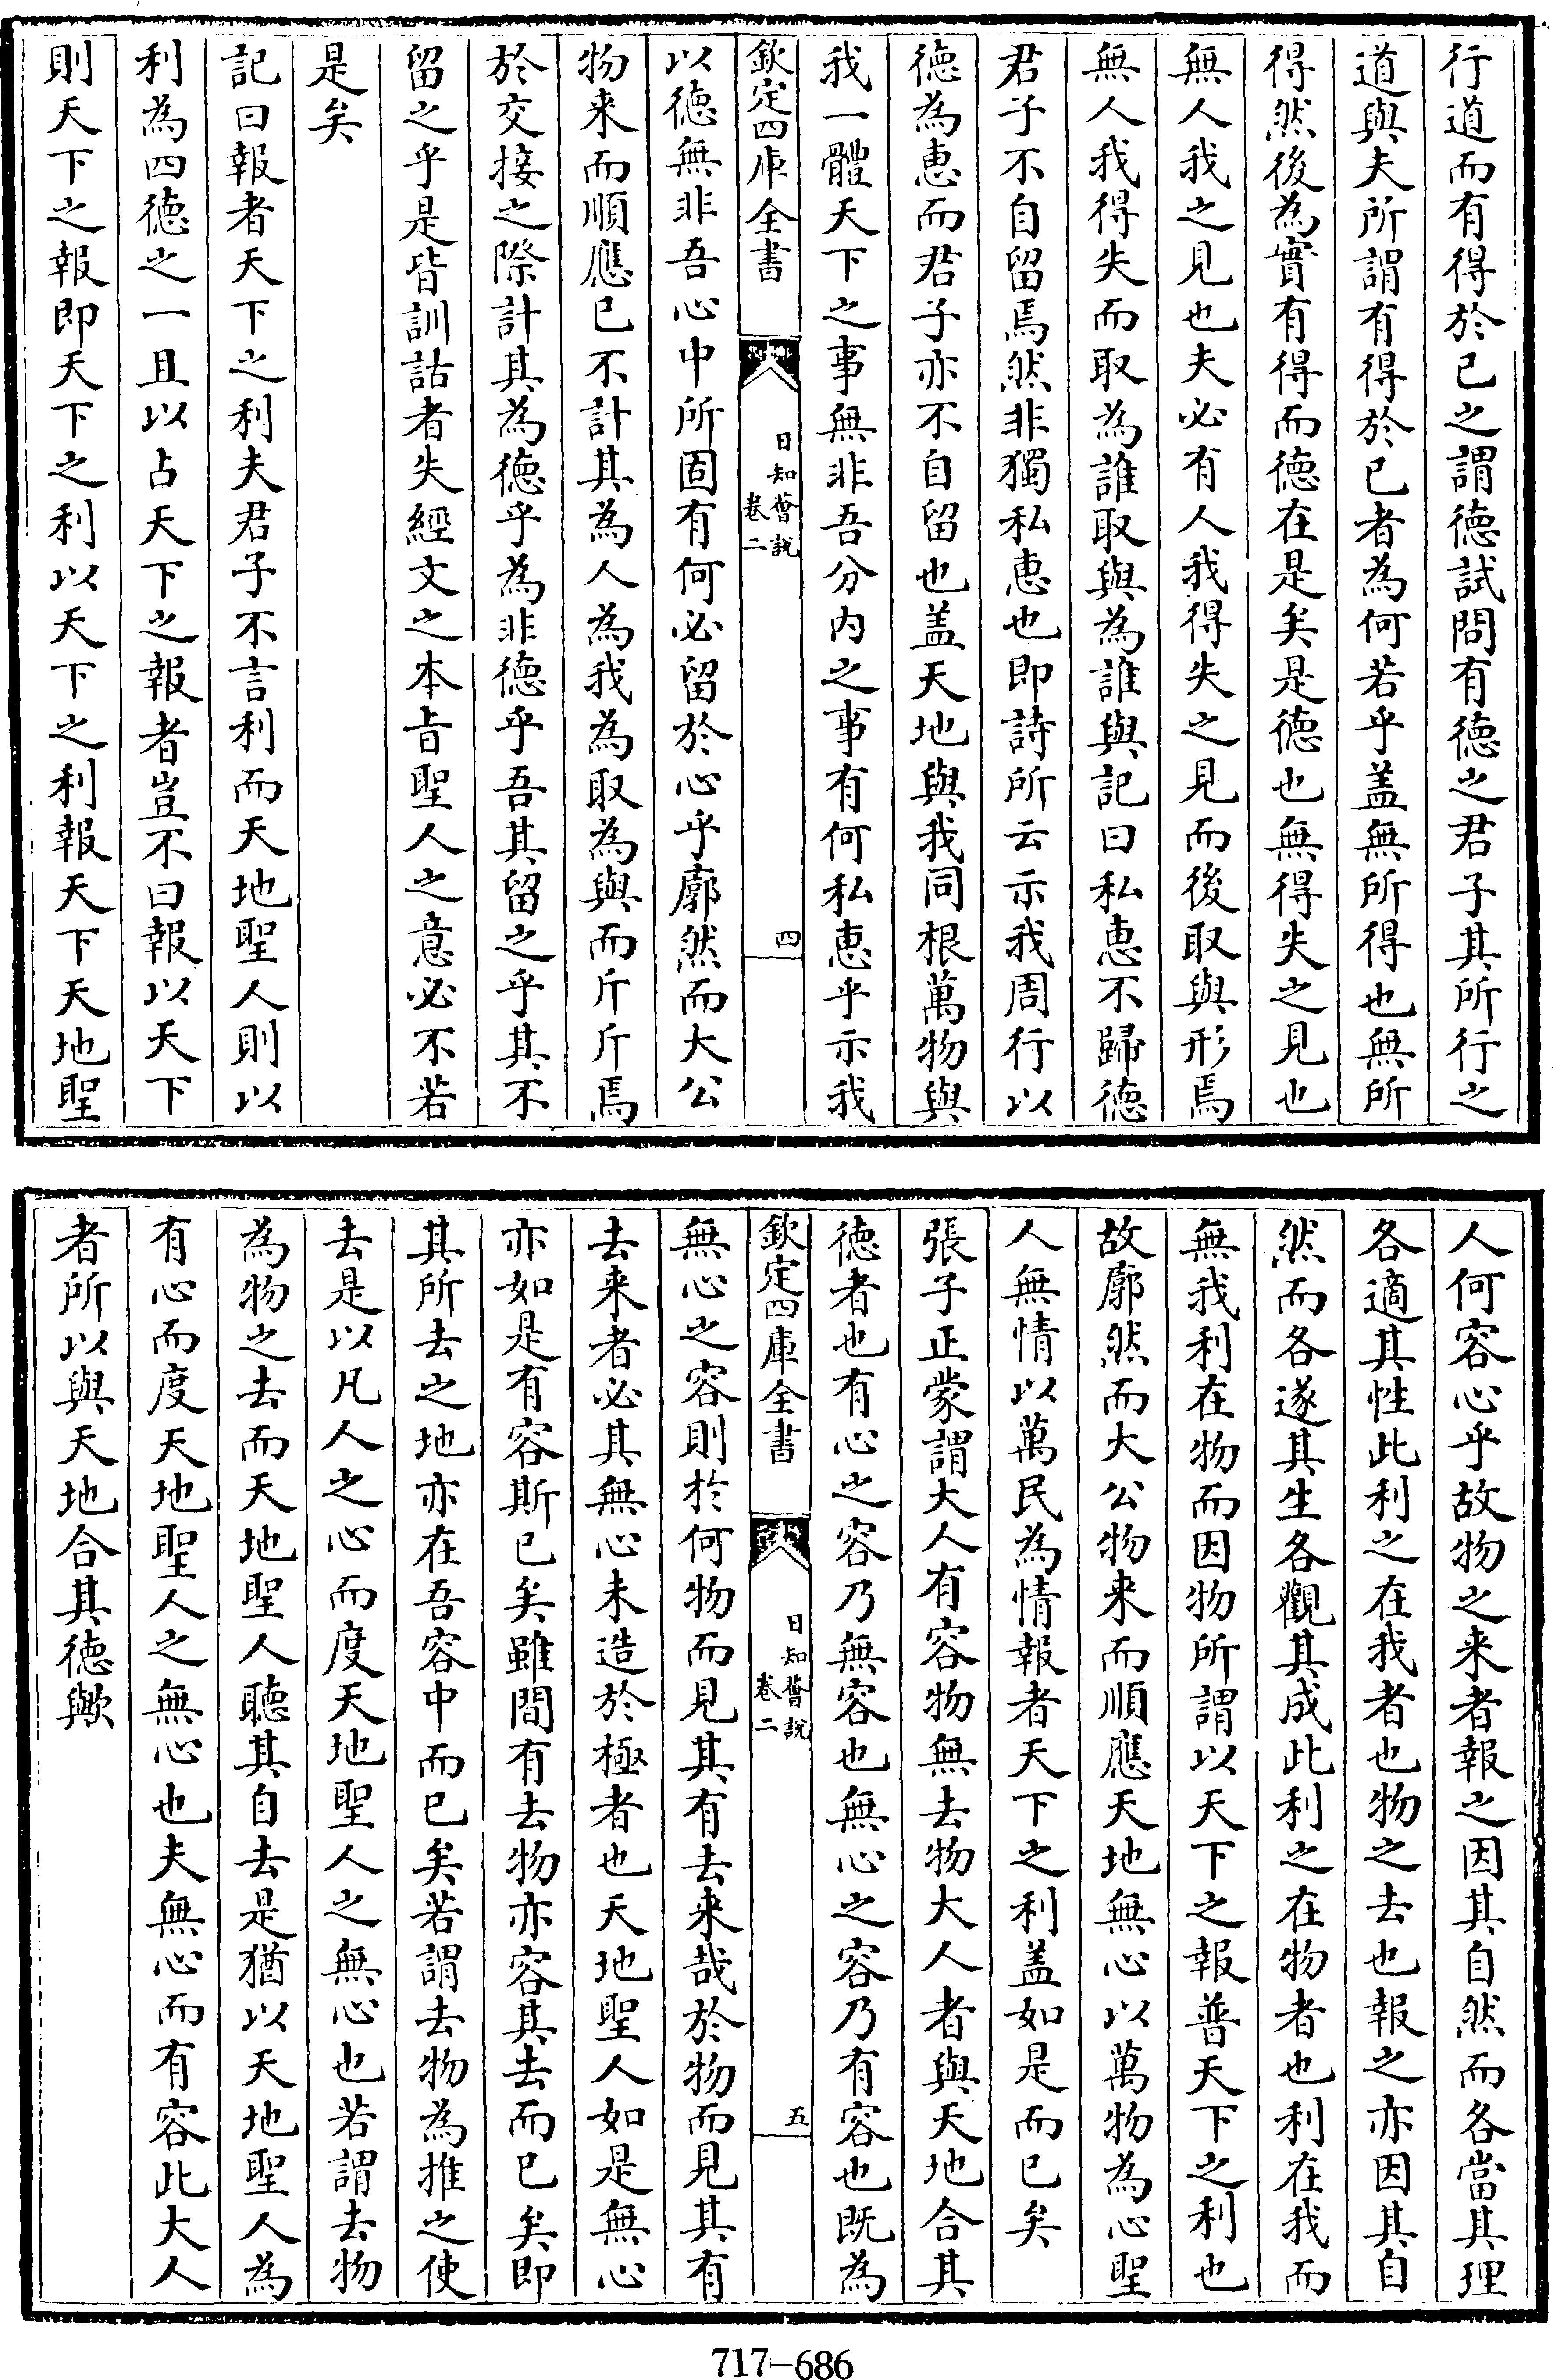 行道而有得於已之謂徳試問有徳之君子其所行之
道與夫所謂有得於已者為何若乎盖無所得也無所
得然後為實有得而徳在是矣是徳也無得失之見也
無人我之見也夫必有人我得失之見而後取與形焉
無人我得失而取為誰取與為誰與記曰私恵不歸徳
君子不自留焉然非獨私恵也即詩所云示我周行以
徳為恵而君子亦不自留也盖天地與我同根萬物與
我一體天下之事無非吾分内之事有何私恵乎示我
欽定四庫全書
日知薈說
卷二
四
以徳無非吾心中所固有何必留於心乎廓然而大公
物来而順應已不計其為人為我為取為與而斤斤焉
於交接之際計其為徳乎為非徳乎吾其留之乎其不
留之乎是皆訓詁者失經文之本㫖聖人之意必不若
是矣
記曰報者天下之利夫君子不言利而天地聖人則以
利為四徳之一且以占天下之報者豈不曰報以天下
則天下之報即天下之利以天下之利報天下天地聖
人何容心乎故物之来者報之因其自然而各當其理
各適其性此利之在我者也物之去也報之亦因其自
然而各遂其生各觀其成此利之在物者也利在我而
無我利在物而因物所謂以天下之報普天下之利也
故廓然而大公物来而順應天地無心以萬物為心聖
人無情以萬民為情報者天下之利盖如是而已矣
張子正蒙謂大人有容物無去物大人者與天地合其
徳者也有心之容乃無容也無心之容乃有容也既為
欽定四庫全書
日知薈說
卷二
五
無心之容則於何物而見其有去来哉於物而見其有
去来者必其無心未造於極者也天地聖人如是無心
亦如是有容斯已矣雖間有去物亦容其去而已矣即
其所去之地亦在吾容中而已矣若謂去物為推之使
去是以凡人之心而度天地聖人之無心也若謂去物
為物之去而天地聖人聽其自去是猶以天地聖人為
有心而度天地聖人之無心也夫無心而有容此大人
者所以與天地合其徳歟
717-686